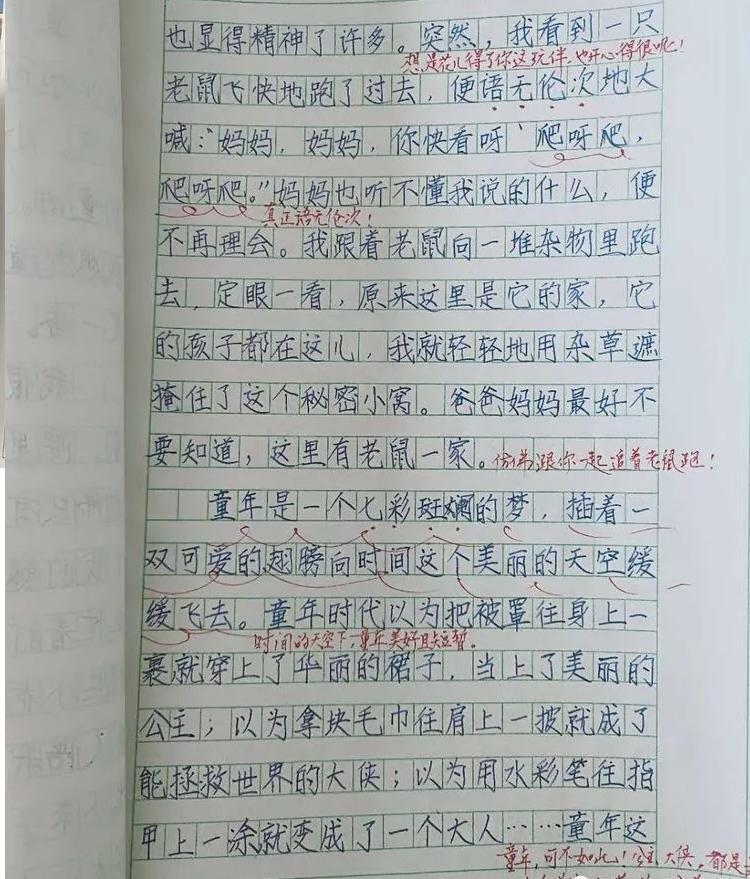 也显得精神了许多。突然，我看到一只
想是花儿得了你这玩伴，也开心得很呢！
老鼠飞快地跑了过去，便语无伦次地大
喊：“妈妈，妈妈，你快看呀，爬呀爬，
爬呀爬。”妈妈也听不懂我说的什么，便
真正语无伦次！
不再理会。我跟着老鼠向一堆杂物里跑
去，定眼一看，原来这里是它的家，它
的孩子都在这儿，我就轻轻地用杂草遮
掩住了这个秘密小窝。爸爸妈妈最好不
要知道，这里有老鼠一家。
仿佛跟你一起追着老鼠跑！
童年是一个七彩斑斓的梦，插着一
双可爱的翅膀向时间这个美丽的天空缓
缓飞去。童年时代以为把被罩往身上一
时间的天空下，童年美好且短暂。
裹就穿上了华丽的裙子，当上了美丽的
公主；以为拿块毛巾往肩上一披就成了
能拯救世界的大侠；以为用水彩笔往指
甲上一涂就变成了一个大人……童年这
童年，可不如此！公主、大侠，都是